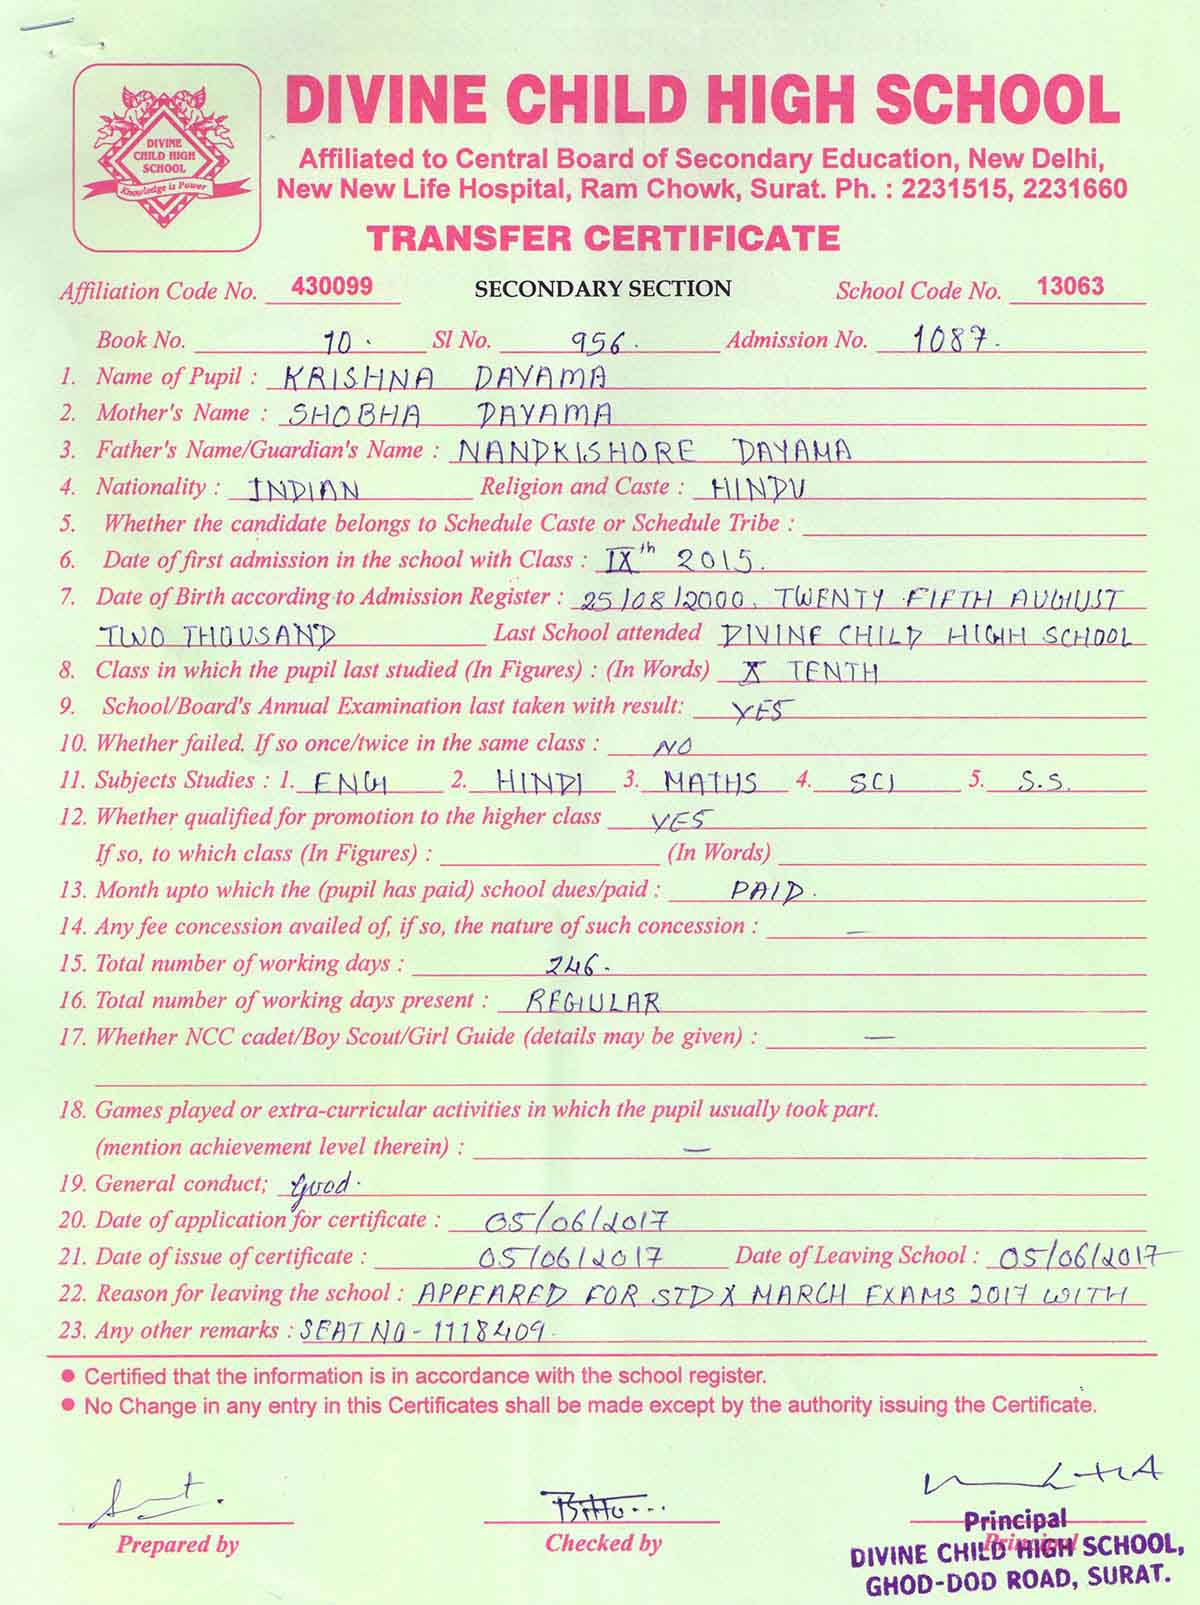 DIVINE CHILD HIGH SCHOOL
DIVINE
CHILD HIGH
SCHOOL
Knowledge is Power
Affiliated to Central Board of Secondary Education, New Delhi,
New New Life Hospital, Ram Chowk, Surat. Ph. : 2231515, 2231660
TRANSFER CERTIFICATE
Affiliation Code No. 430099 SECONDARY SECTION School Code No. 13063
Book No. 10. Sl No. 956. Admission No. 1087.
1. Name of Pupil : KRISHNA DAYAMA
2. Mother's Name : SHOBHA DAYAMA
3. Father's Name/Guardian's Name : NANDKISHORE DAYAMA
4. Nationality : INDIAN Religion and Caste : HINDU
5. Whether the candidate belongs to Schedule Caste or Schedule Tribe :
6. Date of first admission in the school with Class : IXth 2015.
7. Date of Birth according to Admission Register : 25/08/2000, TWENTY FIFTH AUGUST
TWO THOUSAND Last School attended DIVINE CHILD HIGH SCHOOL
8. Class in which the pupil last studied (In Figures) : (In Words) X TENTH
9. School/Board's Annual Examination last taken with result: YES
10. Whether failed. If so once/twice in the same class : NO
11. Subjects Studies : 1. ENG 2. HINDI 3. MATHS 4. SCI 5. S.S.
12. Whether qualified for promotion to the higher class YES
If so, to which class (In Figures) : (In Words)
13. Month upto which the (pupil has paid) school dues/paid : PAID.
14. Any fee concession availed of, if so, the nature of such concession : —
15. Total number of working days : 246.
16. Total number of working days present : REGULAR
17. Whether NCC cadet/Boy Scout/Girl Guide (details may be given) : —
18. Games played or extra-curricular activities in which the pupil usually took part.
(mention achievement level therein) : —
19. General conduct; Good.
20. Date of application for certificate : 05/06/2017
21. Date of issue of certificate : 05/06/2017 Date of Leaving School : 05/06/2017
22. Reason for leaving the school : APPEARED FOR STD X MARCH EXAMS 2017 WITH
23. Any other remarks : SEAT NO - 1118409.
● Certified that the information is in accordance with the school register.
● No Change in any entry in this Certificates shall be made except by the authority issuing the Certificate.
Prepared by Checked by Principal
Principal
DIVINE CHILD HIGH SCHOOL,
GHOD-DOD ROAD, SURAT.